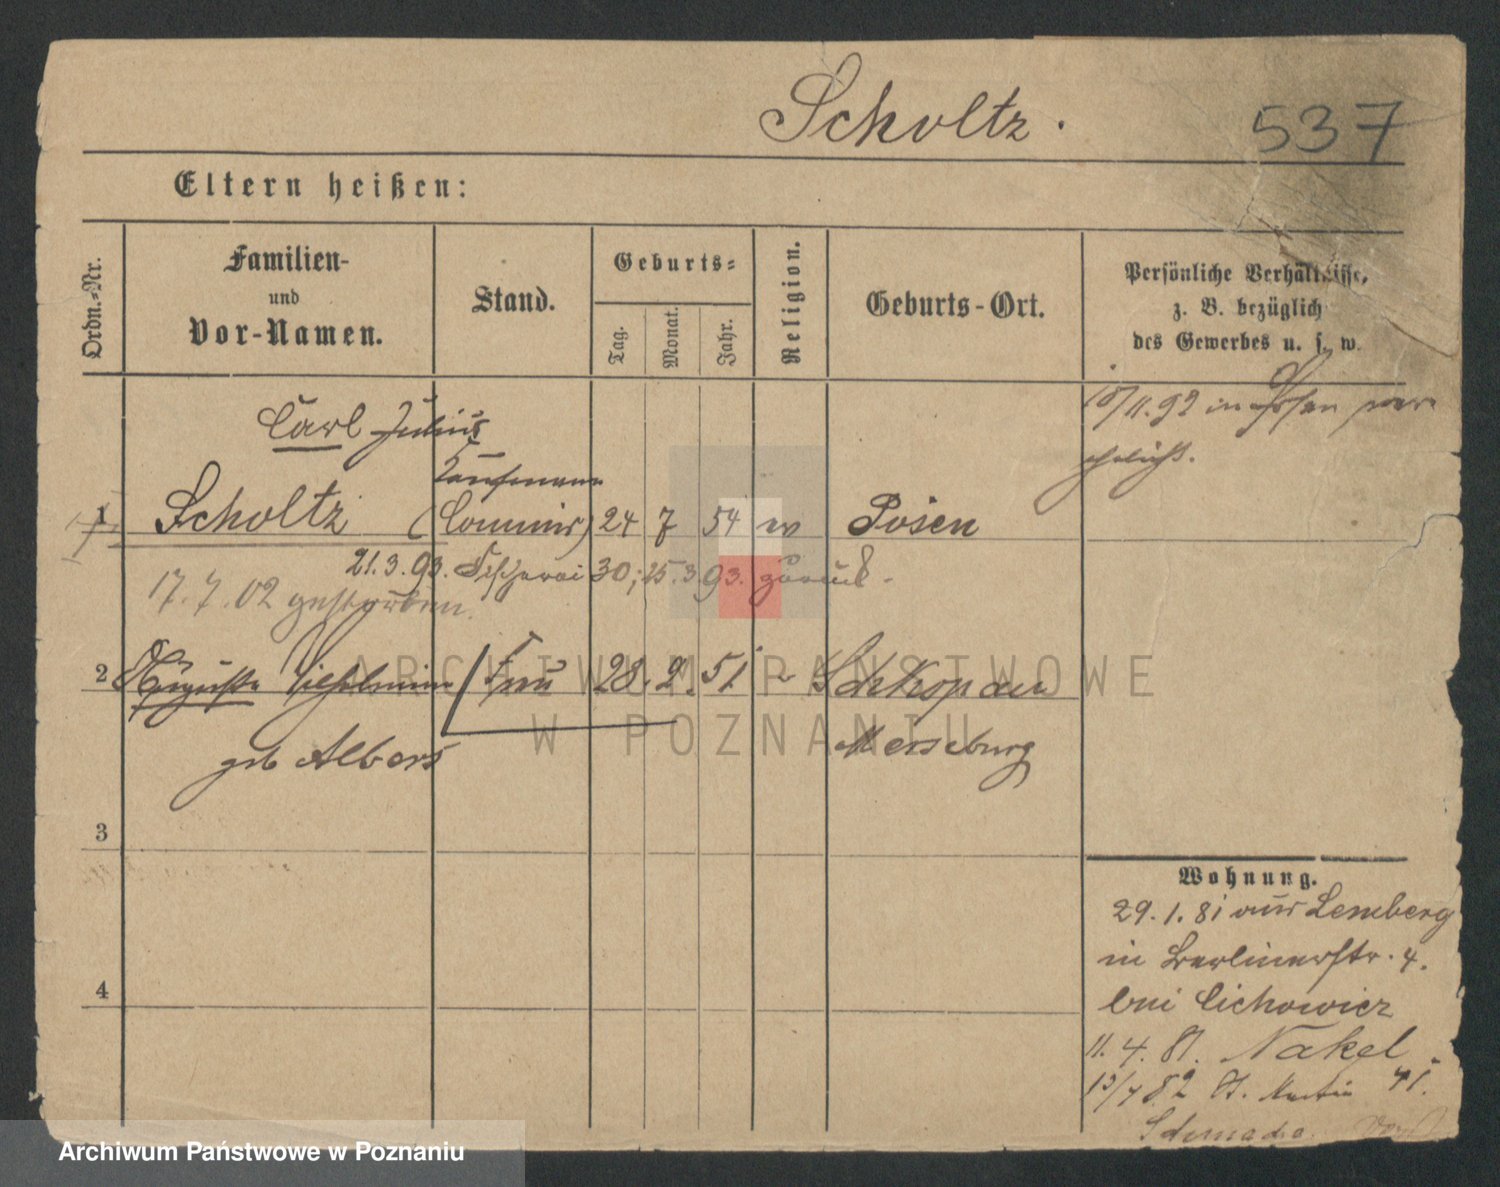 Scholtz.
537
Eltern heißen:
Ordn.-Nr.
Familien-
und
Vor-Namen.
Stand.
Geburts-
Tag.
Monat.
Jahr.
Religion.
Geburts-Ort.
Persönliche Verhältnisse,
z. B. bezüglich
des Gewerbes u. s. w.
Carl Julius
Kaufmann
1 Scholtz (Commis) 24 7 54 ev Posen
21.3.93. 30; 25.3.93. zurück.
17.7.02 gestorben.
10/11.92 in
2 Auguste Wilhelmine Frau 28. 2. 51 Schkopau
geb Albers Merseburg
3
4
Wohnung.
29.1.81 aus Lemberg
in Berlinerstr. 4.
bei Cichowicz
11.4.81. Nakel.
13/4 82 St. Martin 41.
ARCHIWUM PAŃSTWOWE
W POZNANIU
Archiwum Państwowe w Poznaniu